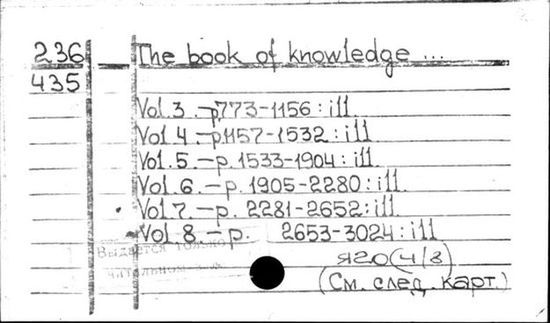 236 The book of knowledge ...
435
Vol.3.-p773-1156:ill
Vol 4.-p.1157-1532:ill
Vol.5.-p.1533-1904:ill
Vol.6.-p.1905-2280:ill
Vol 7.-p.2281-2652:ill
Vol 8-p. 2653-3024:ill
Выдается только
Я20(4/8)
(См. след. карт.)